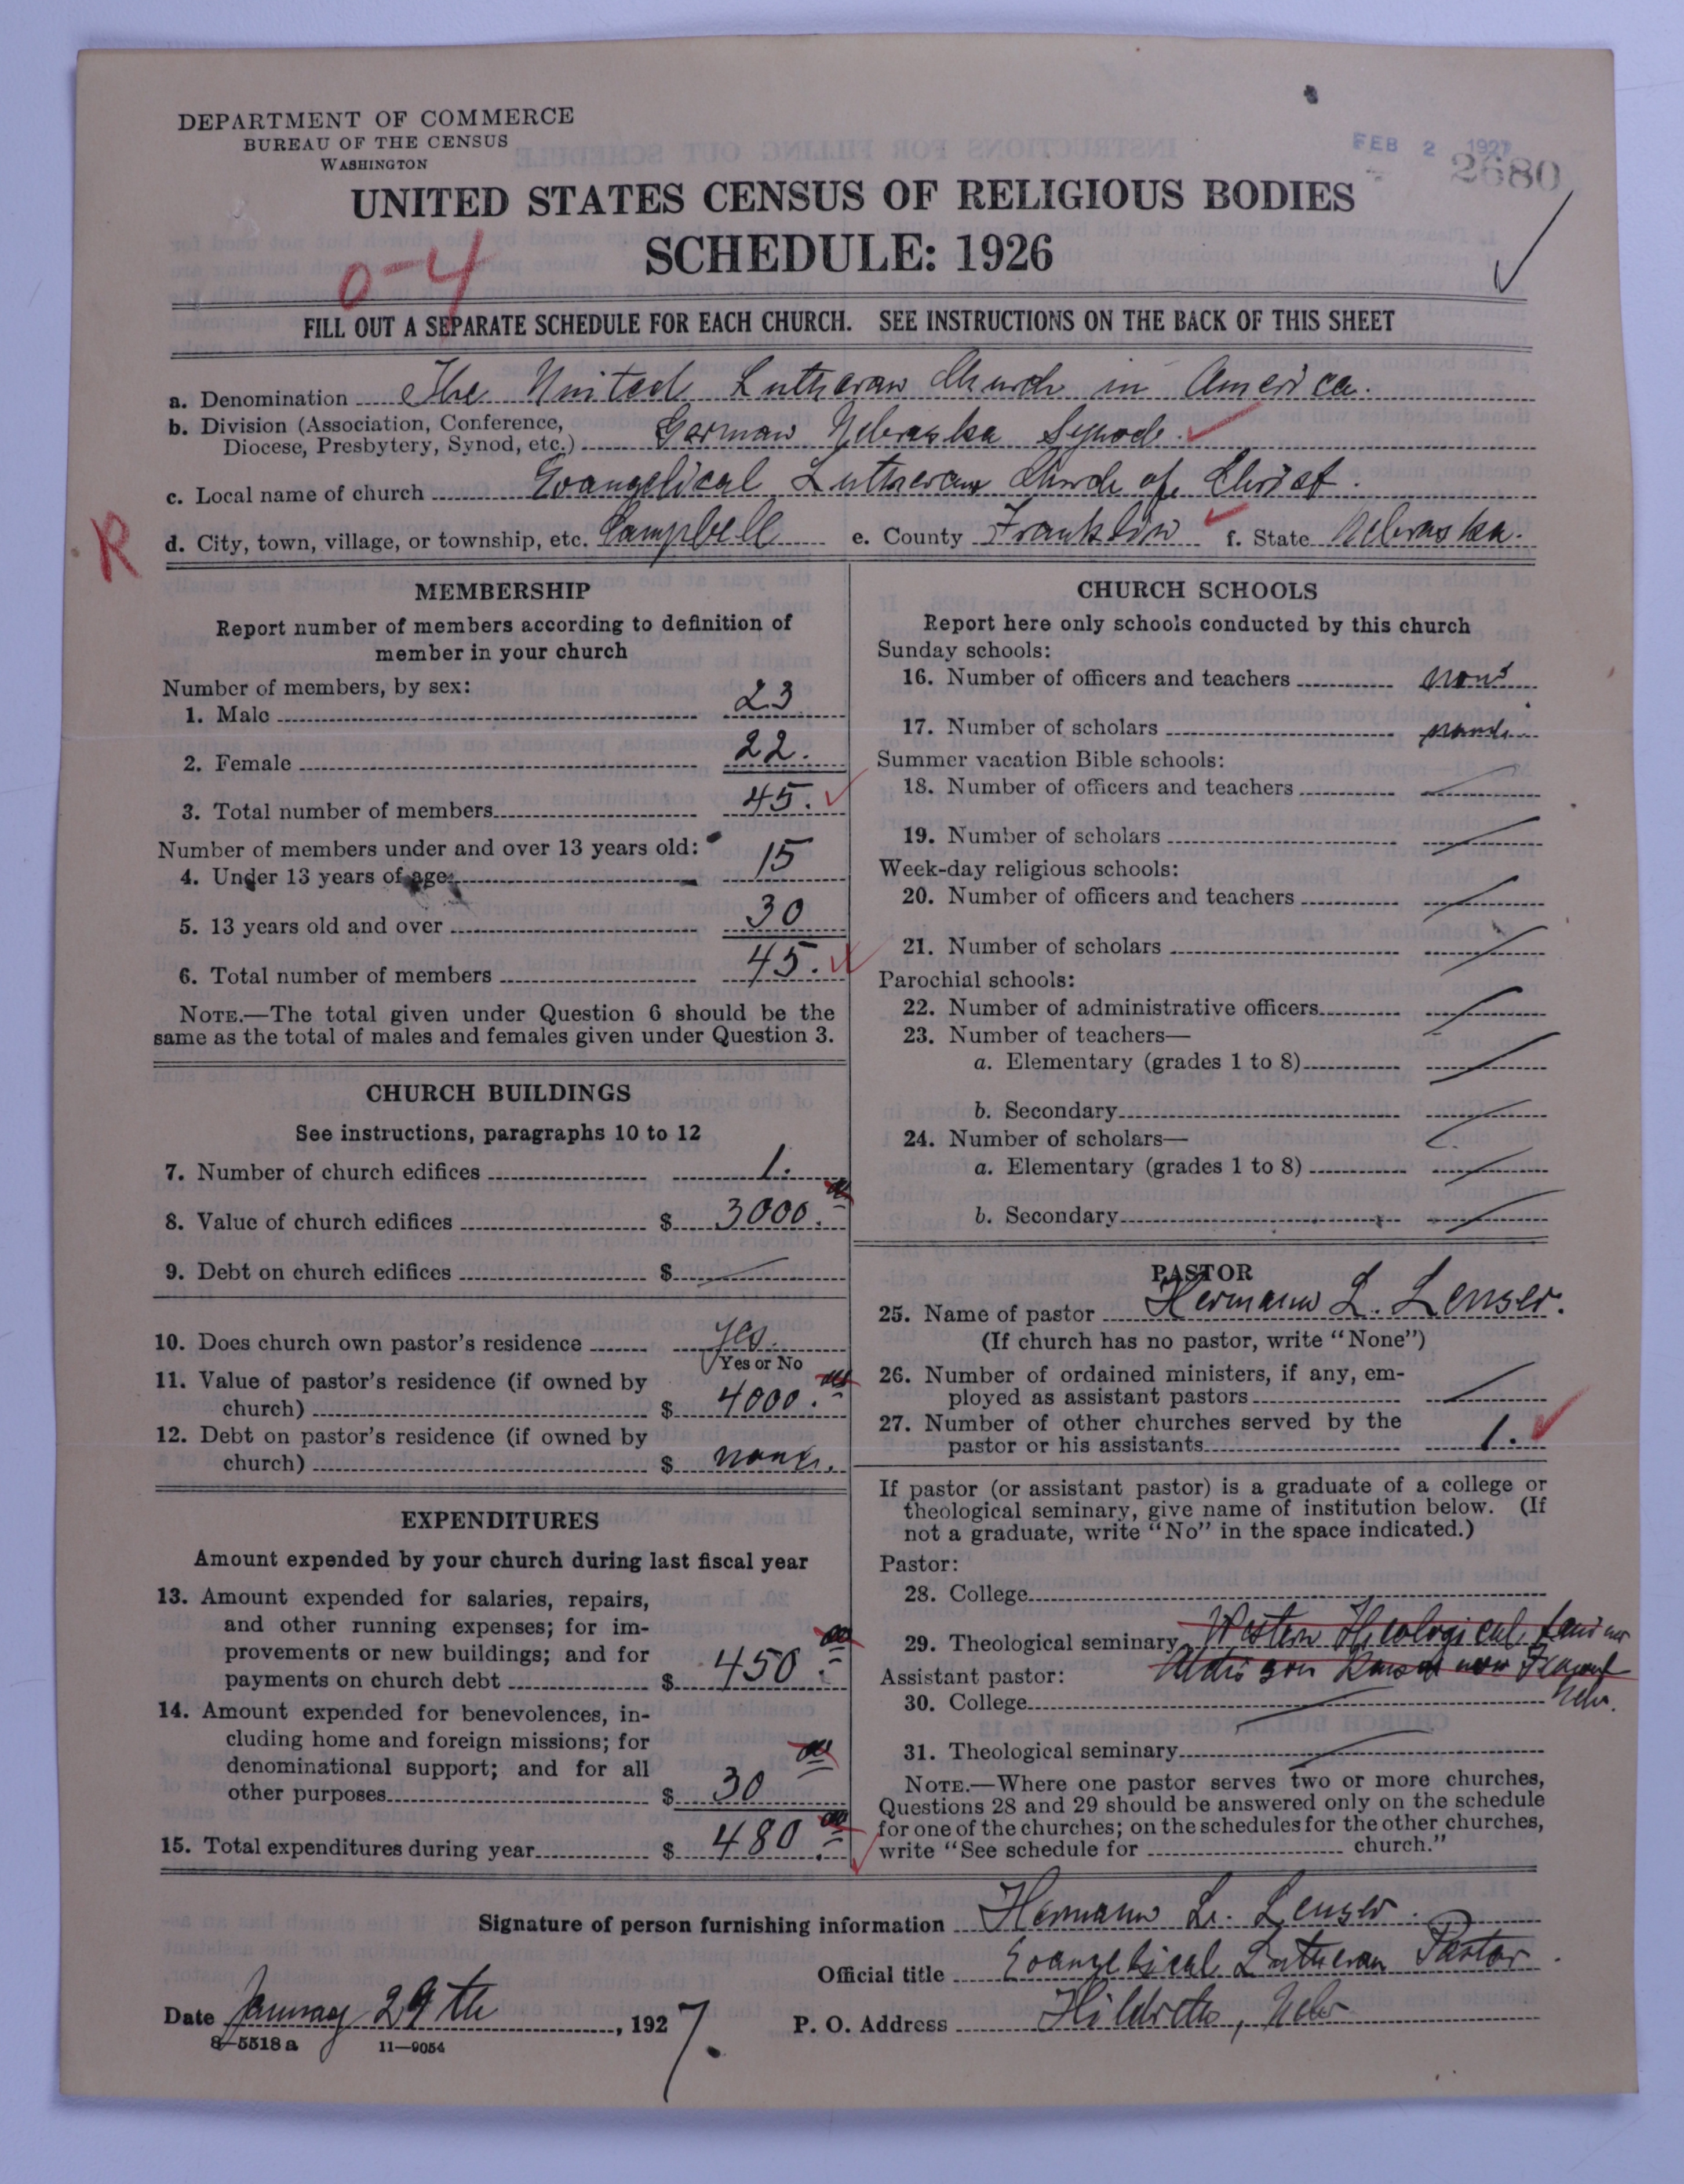 DEPARTMENT OF COMMERCE
BUREAU OF THE CENSUS
WASHINGTON
FEB 2 1927
2680
UNITED STATES CENSUS OF RELIGIOUS BODIES
SCHEDULE: 1926
0-4
FILL OUT A SEPARATE SCHEDULE FOR EACH CHURCH. SEE INSTRUCTIONS ON THE BACK OF THIS SHEET
a. Denomination The United Lutheran Church in America.
b. Division (Association, Conference,
Diocese, Presbytery, Synod, etc.) German Nebraska Synode.
c. Local name of church Evangelical Lutheran Church of Christ.
R
d. City, town, village, or township, etc. Campbell e. County Franklin f. State Nebraska.
MEMBERSHIP
Report number of members according to definition of
member in your church
Number of members, by sex:
1. Male 23
2. Female 22.
3. Total number of members 45.
Number of members under and over 13 years old:
4. Under 13 years of age: 15
5. 13 years old and over 30
6. Total number of members 45.
NOTE.—The total given under Question 6 should be the
same as the total of males and females given under Question 3.
CHURCH BUILDINGS
See instructions, paragraphs 10 to 12
7. Number of church edifices 1.
8. Value of church edifices $ 3000.
9. Debt on church edifices $
10. Does church own pastor's residence yes.
Yes or No
11. Value of pastor's residence (if owned by
church) $ 4000.
12. Debt on pastor's residence (if owned by
church) $ none.
EXPENDITURES
Amount expended by your church during last fiscal year
13. Amount expended for salaries, repairs,
and other running expenses; for im-
provements or new buildings; and for
payments on church debt $ 450.
14. Amount expended for benevolences, in-
cluding home and foreign missions; for
denominational support; and for all
other purposes $ 30
15. Total expenditures during year $ 480.
CHURCH SCHOOLS
Report here only schools conducted by this church
Sunday schools:
16. Number of officers and teachers none
17. Number of scholars none
Summer vacation Bible schools:
18. Number of officers and teachers
19. Number of scholars
Week-day religious schools:
20. Number of officers and teachers
21. Number of scholars
Parochial schools:
22. Number of administrative officers
23. Number of teachers—
a. Elementary (grades 1 to 8)
b. Secondary
24. Number of scholars—
a. Elementary (grades 1 to 8)
b. Secondary
PASTOR
25. Name of pastor Hermann L. Lenser.
(If church has no pastor, write "None")
26. Number of ordained ministers, if any, em-
ployed as assistant pastors
27. Number of other churches served by the
pastor or his assistants 1.
If pastor (or assistant pastor) is a graduate of a college or
theological seminary, give name of institution below. (If
not a graduate, write "No" in the space indicated.)
Pastor:
28. College
29. Theological seminary Western Theological
Assistant pastor: now Fremont
30. College Nebr.
31. Theological seminary
NOTE.—Where one pastor serves two or more churches,
Questions 28 and 29 should be answered only on the schedule
for one of the churches; on the schedules for the other churches,
write "See schedule for church."
Signature of person furnishing information Hermann L. Lenser.
Official title Evangelical Lutheran Pastor.
Date January 29th, 1927. P. O. Address Hildreth, Nebr
8—5518 a 11—9054